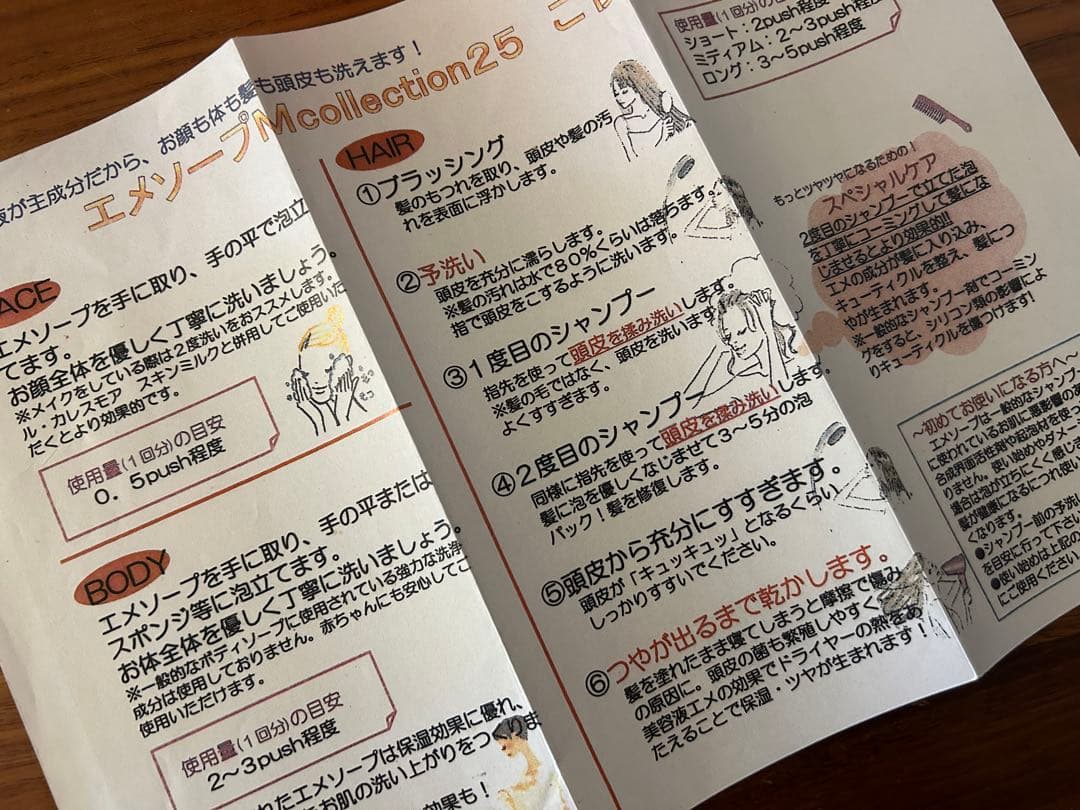 液が主成分だから、お顔も体も髪も頭皮も洗えます！
エメソープMcollection25
ACE
エメソープを手に取り、手の平で泡立
てます。
お顔全体を優しく丁寧に洗いましょう。
※メイクをしている際は2度洗いをおススメします。
ル・カレスモア スキンミルクと併用してご使用いた
だくとより効果的です。
使用量(1回分)の目安
0．5push程度
BODY
エメソープを手に取り、手の平または
スポンジ等に泡立てます。
お体全体を優しく丁寧に洗いましょう。
※一般的なボディソープに使用されている強力な洗浄
成分は使用しておりません。赤ちゃんにも安心してご
使用いただけます。
使用量(1回分)の目安
2～3push程度
れたエメソープは保湿効果に優れ、
お肌の洗い上がりをつ
効果も！
HAIR
①ブラッシング
髪のもつれを取り、頭皮や髪の汚
れを表面に浮かします。
②予洗い
頭皮を充分に濡らします。
※髪の汚れは水で80%くらいは落ちます。
指で頭皮をこするように洗います。
③1度目のシャンプー
指先を使って頭皮を揉み洗いします。
※髪の毛ではなく、頭皮を洗います。
よくすすぎます。
④2度目のシャンプー
同様に指先を使って頭皮を揉み洗いします。
髪に泡を優しくなじませて3～5分の泡
パック！髪を修復します。
⑤頭皮から充分にすすぎます。
頭皮が「キュッキュッ」となるくらい
しっかりすすいでください。
⑥つやが出るまで乾かします。
髪を塗れたまま寝てしまうと摩擦で傷み
の原因に。頭皮の菌も繁殖しやすく
美容液エメの効果でドライヤーの熱をあ
たえることで保湿・ツヤが生まれます！
使用量(1回分)の
ショート：2push程度
ミディアム：2～3push程度
ロング：3～5push程度
もっとツヤツヤになるための！
スペシャルケア
2度目のシャンプーで立てた泡
を丁寧にコーミングして髪にな
じませるとより効果的!!
エメの成分が髪に入り込み、
キューティクルを整え、髪につ
やが生まれます。
※一般的なシャンプー剤でコーミン
グをすると、シリコン類の影響によ
りキューティクルを傷つけます！
～初めてお使いになる方へ～
エメソープは一般的なシャンプー
に使われているお肌に悪影響のあ
合成界面活性剤や起泡材を使っ
りません。使い始めやダメー
場合は泡が立ちにくく感じま
髪が健康になるにつれ使い
くなります。
●シャンプー前の予洗い
を目安に行って下さい
●使い始めは上記の
にご使用ください